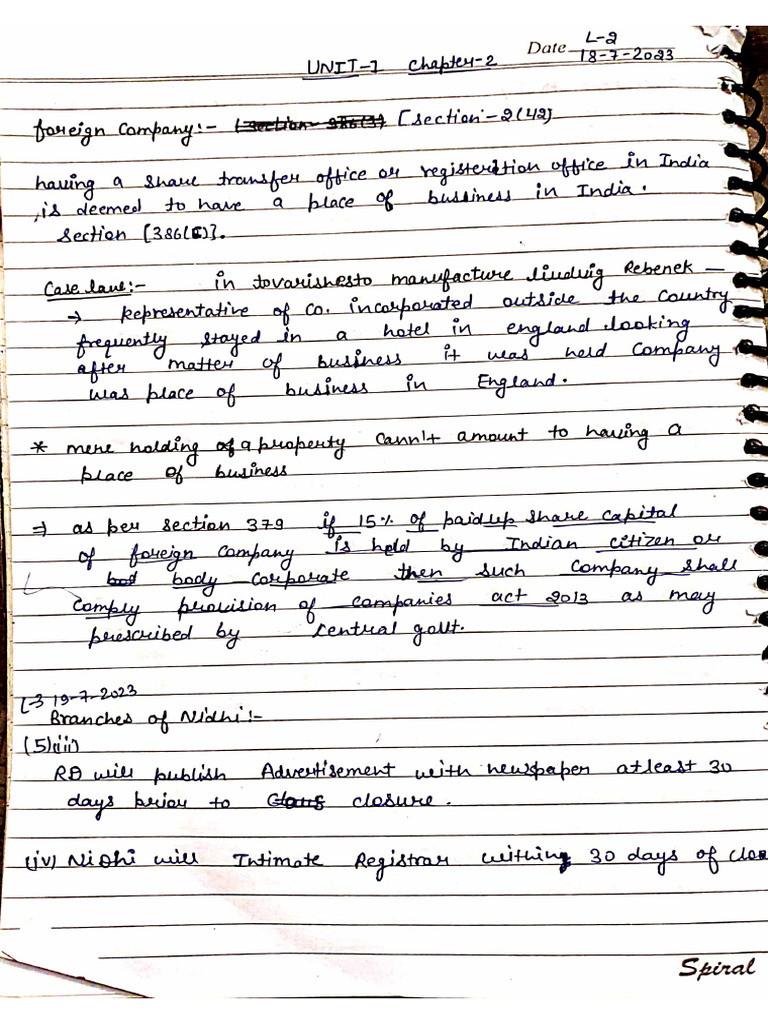 L-2
Date 18-7-2023
UNIT-1 Chapter-2
foreign Company:- (section- 386(3) [section:-2(42)
having a share transfer office or registerition office in India
,is deemed to have a place of bussiness in India.
section [386(C)].
Case law:- in tovarishesto manufacture liudvig Rebenek —
→ Representative of Co. incorporated outside the Country
frequently stayed in a hotel in england looking
after matter of business it was held Company
was place of business in England.
* mere holding of a property Cann't amount to having a
place of business
⇒ as per section 379 if 15% of paidup share capital
of foreign Company is held by Indian citizen or
body corporate then such company shall
Comply provision of companies act 2013 as may
prescribed by central govt.
L-3 19-7-2023
Branches of Nidhi:-
(5)(iii)
RD will publish Advertisement with newspaper atleast 30
days prior to closure.
(iv) Nidhi will Intimate Registrar withing 30 days of clo
Spiral